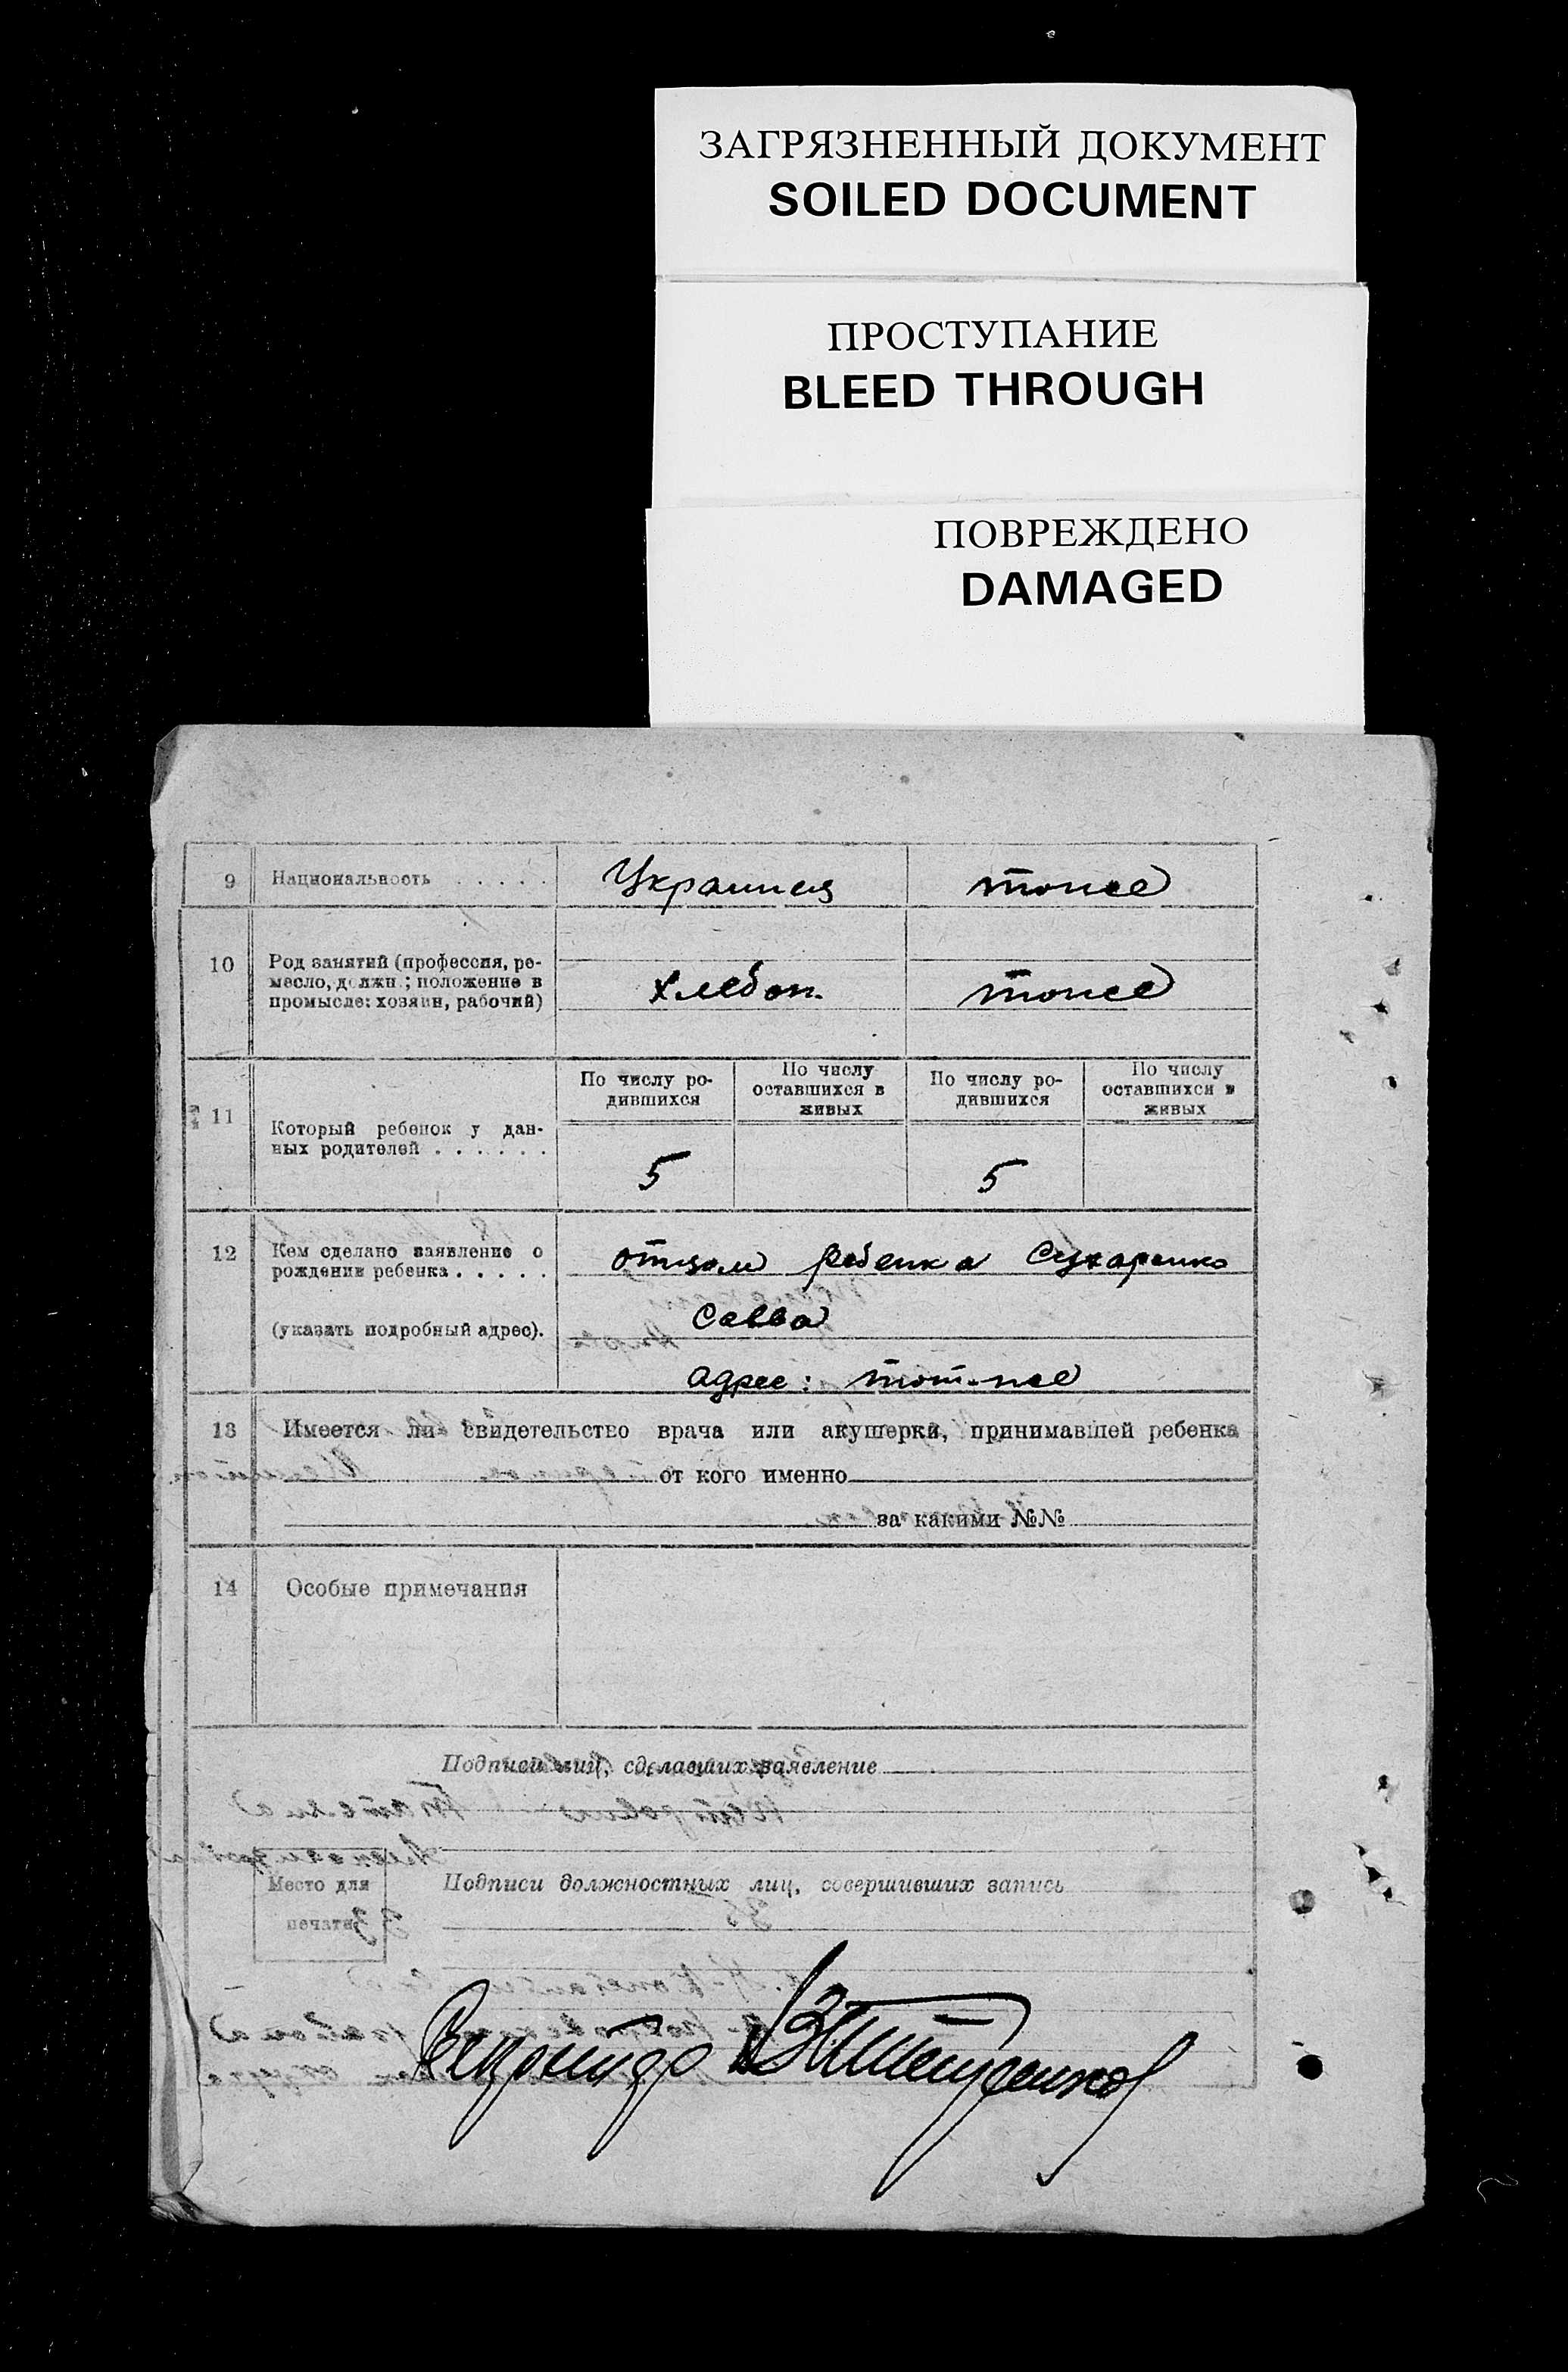 ЗАГРЯЗНЕННЫЙ ДОКУМЕНТ
SOILED DOCUMENT
ПРОСТУПАНИЕ
BLEED THROUGH
ПОВРЕЖДЕНО
DAMAGED
9 Национальность . . . . . Украинец тоже
10 Род занятий (профессия, ре-
месло, должн.; положение в
промысле: хозяин, рабочий) хлебоп. тоже
11 Который ребенок у дан-
ных родителей . . . . . .
По числу ро-
дившихся
По числу
оставшихся в
живых
По числу ро-
дившихся
По числу
оставшихся в
живых
5 5
12 Кем сделано заявление о
рождении ребенка . . . . .
(указать подробный адрес).
отцом ребенка Сухаренко
Савва
адрес: тот-же
13 Имеется ли свидетельство врача или акушерки, принимавшей ребенка
от кого именно
за какими №№
14 Особые примечания
Подписи лиц, сделавших заявление
Место для
печати
Подписи должностных лиц, совершивших запись